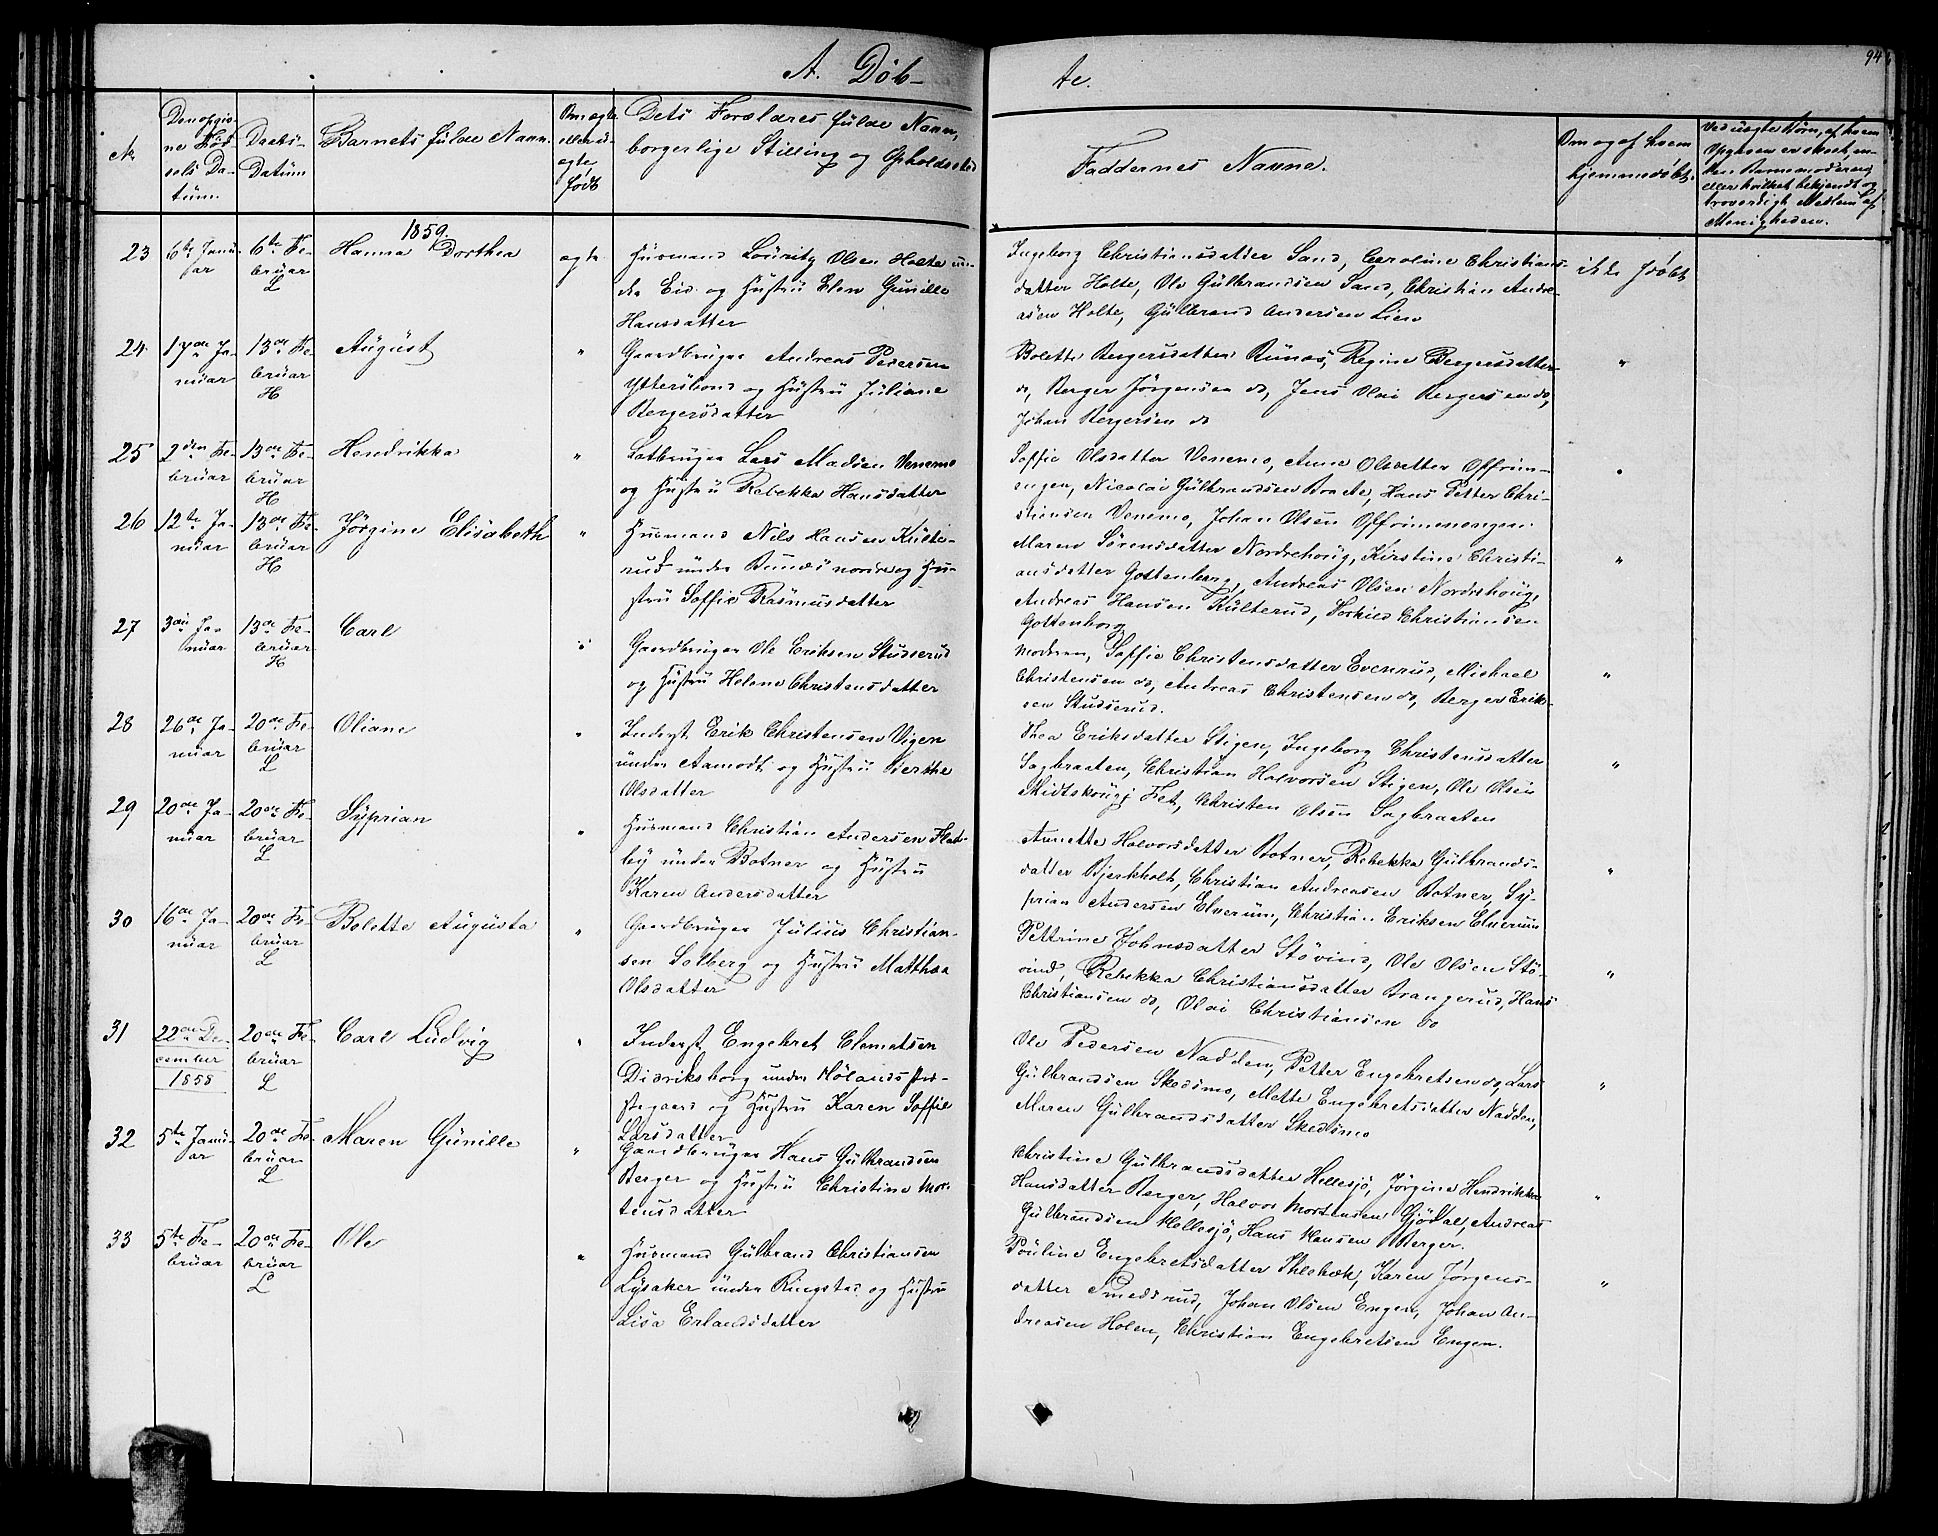 A. Döb-
te.
94
№
Den opgiv-
ne Föd-
sels Da-
tüm.
Daabs-
Datüm
Barnets fulde Navn.
Om ægte
eller ü-
ægte
födt
Dets Forældres fulde Navn,
borgerlige Stilling og Opholdssted
Faddernes Navne.
Om og af hvem
hjemmedöbt.
Ved uægte Börn, af hvem
Opgaven er skeet, en-
ten Barnemoderen
eller hvilket bekjendt og
troværdigt Medlem af
Menigheden.
1859.
23
6te Janu-
ar
6te Fe-
bruar
L
Hanna Dorthea
ægte
Husmand Louritz Olsen Holte un-
der Eid og Hustru Elen Gunille
Hansdatter
Ingeborg Christiansdatter Sand, Caroline Christians-
datter Holte, Ole Gulbrandsen Sand, Christian Andre-
asen Holte, Gulbrand Andersen Lien
ikke döbt
24
17de Ja-
nuar
13de Fe-
bruar
H
August
"
Gaardbruger Andreas Pedersen
Yttersbond og Hustru Juliane
Bergersdatter
Bolette Bergersdatter Bunæs, Regine Bergersdatter
do, Berger Jörgensen do, Jens Olai Bergersen do,
Johan Bergersen do
"
25
2den Fe-
bruar
13de Fe-
bruar
H
Hendrikka
"
Ladbruger Lars Madsen Venemo
og Hustru Rebekka Hansdatter
Soffie Olsdatter Venemo, Anne Olsdatter Offrim-
engen, Nicolai Gulbrandsen Braate, Hans Petter Chri-
stiansen Venemo, Johan Olsen Offrimmengen
"
26
12te Ja-
nuar
13de Fe-
bruar
H
Jörgine Elisabeth
"
Husmand Nils Hansen Kulte-
rud under Bunæs nordre og Hu-
stru Soffie Rasmusdatter
Maren Sörensdatter Nordrehoug, Kirstine Christi-
ansdatter Gottenborg, Andreas Olsen Nordrehoug,
Andreas Hansen Kulterud, Torkild Christiansen
Gottenborg
"
27
3die Ja-
nuar
13de Fe-
bruar
H
Carl
"
Gaardbruger Ole Eriksen Studserud
og Hustru Helene Christensdatter
Moderen, Soffie Christensdatter Evenrud, Michael
Christensen do, Andreas Christensen do, Berger Erik-
sen Studserud.
"
28
26de Ja-
nuar
20de Fe-
bruar
L
Oliane
"
Inderst Erik Christensen Vigen
under Aamodt og Hustru Bierthe
Olsdatter
Thea Eriksdatter Stigen, Ingeborg Christensdatter
Sagbraaten, Christian Halvorsen Stigen, Ole Olsen
Midtskoug i Fet, Christen Olsen Sagbraaten
"
29
20de Ja-
nuar
20de Fe-
bruar
L
Syprian
"
Husmand Christian Andersen Flad-
by under Botner og Hustru
Karen Andersdatter
Annette Halvorsdatter Botner, Rebekka Gulbrands-
datter Bjerkholt, Christian Andreasen Botner, Sy-
prian Andersen Elverum, Christian Eriksen Elverum
"
30
16de Ja-
nuar
20de Fe-
bruar
L
Bolette Augusta
"
Gaardbruger Julius Christian-
sen Solberg og Hustru Matthea
Olsdatter
Pettrine Johnsdatter Stövind, Ole Olsen Stö-
vind, Rebekka Christiansdatter Brangerud, Hans
Christiansen do, Olai Christiansen do
"
31
22de De-
cember
1858
20de Fe-
bruar
L
Carl Ludvig
"
Inderst Engebret Clemetsen
Didriksborg under Hölands Præ-
stegaard og Hustru Karen Soffie
Larsdatter
Ole Pedersen Nadden, Petter Engebretsen do, Lars
Gulbrandsen Skedsmo, Mette Engebretsdatter Nadden,
Maren Gulbrandsdatter Skedsmo
"
32
5te Janu-
ar
20de Fe-
bruar
L
Maren Gunille
"
Gaardbruger Hans Gulbrandsen
Berger og Hustru Christine Mor-
tensdatter
Christine Gulbrandsdatter Hellesjö, Jörgine Hendrikke
Hansdatter Berger, Halvor Mortensen Gjödal, Andreas
Gulbrandsen Hellesjö, Hans Hansen Berger.
"
33
5te Fe-
bruar
20de Fe-
bruar
L
Ole
"
Husmand Gulbrand Christiansen
Lysaker under Ringstad og Hustru
Lisa Erlandsdatter
Pouline Engebretsdatter Ihlebæk, Karen Jörgens-
datter Smedsrud, Johan Olsen Engen, Johan An-
dreasen Holen, Christian Engebretsen Engen.
"